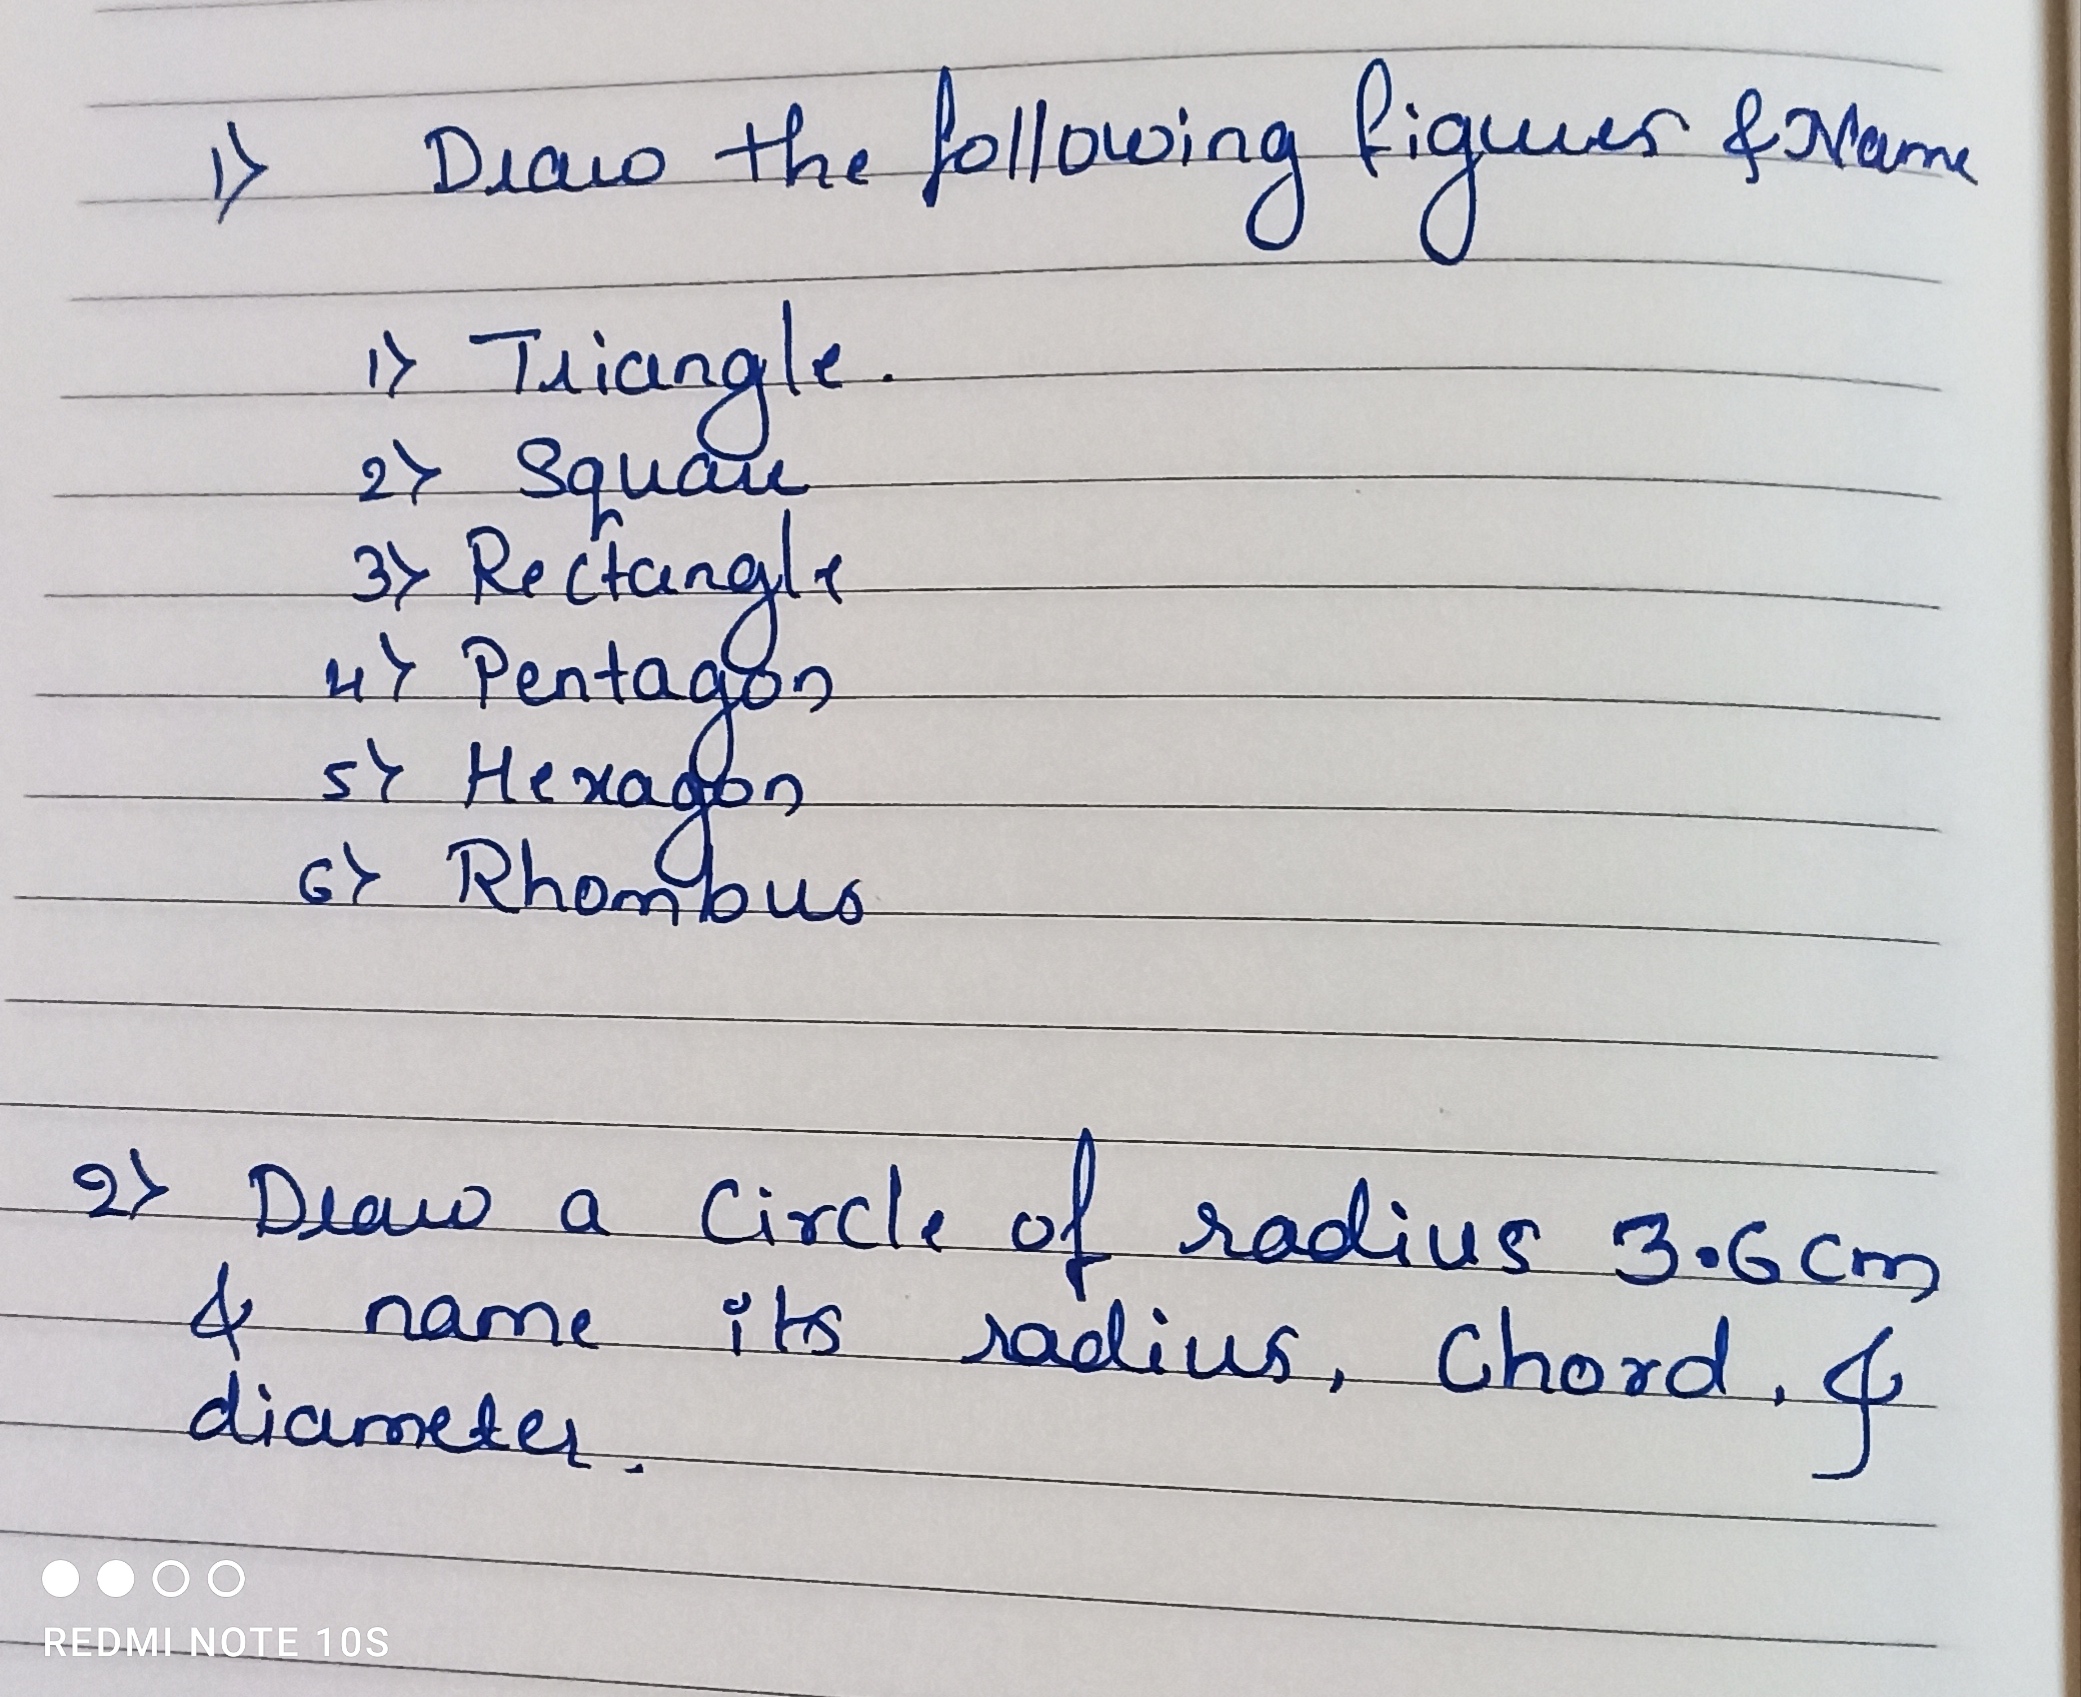 1) Draw the following figures & Name
1) Triangle.
2) Square
3) Rectangle
4) Pentagon
5) Hexagon
6) Rhombus
2) Draw a Circle of radius 3.6cm
& name its radius, Chord, &
diameter.
REDMI NOTE 10S